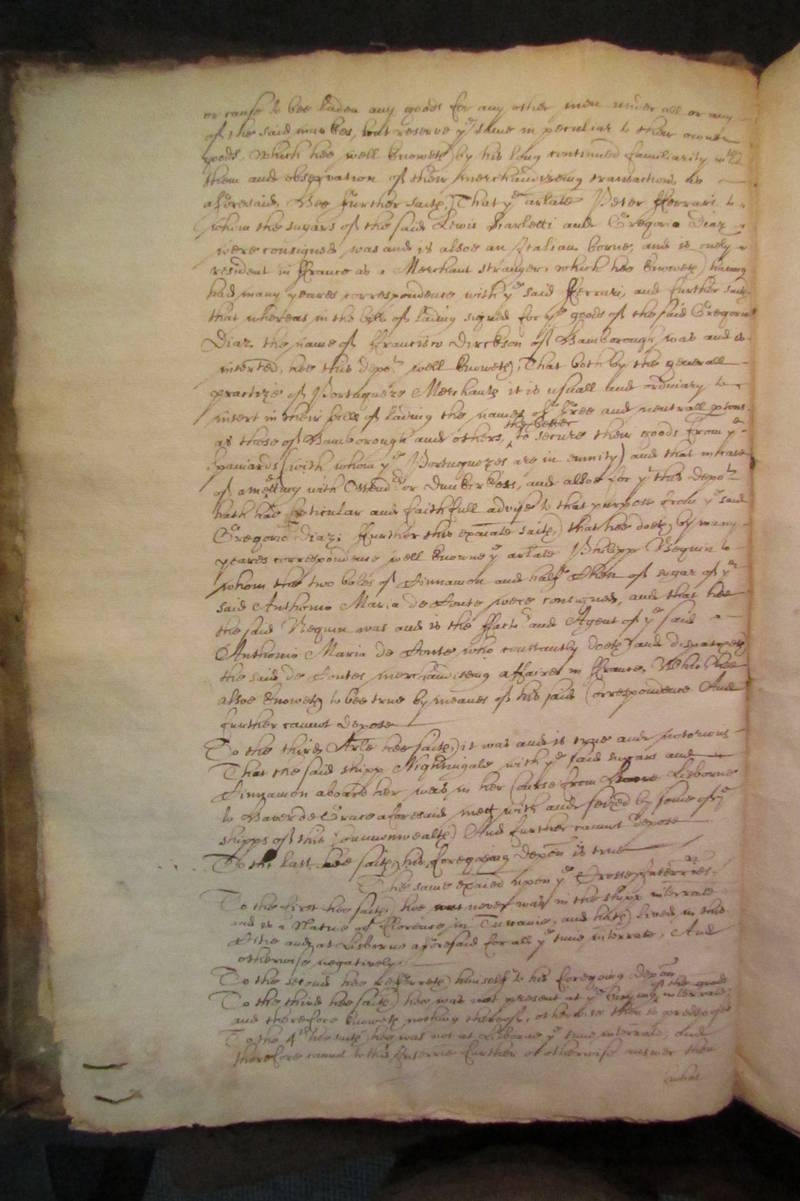 or cause to bee laden any goods for any other men under all or any
of the said markes, but reserve ye same in peculiar to their owne
goods, which hee well knoweth by his long continued familiarity with
them and observation of their merchandizeing transactions as
aforesaid, Hee further saith, That ye arlate Peter Ferrari to
whom the sugars of the said Lewis Barletti and Gregorio Diaz
were consigned was and is alsoe an Italian borne, and is onely
resident in ffrance as a Merchant stranger which hee knoweth having
had many yeares correspondence with ye said fferrari, and further saith
that whereas in the bills of lading signed for ye goods of the said Gregorio
Diaz the name of ffrancisco Dirckson of Hamborough was and is
inserted, hee this depot well knoweth, That both by the generall
practize of Portugueze Merchants it is usuall and ordinary to
insert in their bills of lading the names of free and neutrall persons
as those of Hamborough and others, the better to secure their goods from ye
Spaniards (with whom ye Portuguezes are in enmity) and that in case
of a meeting with Ostend or Dunkerkers, and alsoe for yt this depot
hath had perticular and faithfull advise to that purpose from ye said
Gregorio Diaz: ffurther this examinate saith, that hee doeth by many
yeares correspondence well knowne ye arlate Philipp Nequin to
whom the two bales of Sinnamon and halfe of sugar of ye
said Anthonio Maria de Ponte were consigned, and that hee
the said Nequin was and is the ffactor and Agent of ye said
Anthonio Maria de Ponte who constantly doeth and dispatcheth
the said de Pontes merchandizeing affaires in ffrance, Which hee
alsoe knoweth to bee true by meanes of his said Correspondence And
further cannot depose
To the third Arle hee saith, it was and is true and notorious
That the said shipp Nightingale with ye said sugars and
Sinnamon aboard her was in her Course from Lisborne
to Haver de Grace aforesaid mett with and seized by some of ye
shipps of this Commonwealth, And further cannot depose
To the last hee saith his foregoing depon is true
The same examed upon ye Crosse Interries.
To the first hee saith, hee was never in the shipp interrate
and is a Native of fflorence in Tuscanie, and hath lived in this
Citie and at Lisborne aforesaid for all ye time interrate, And
otherwise negatively.
To the second hee referreth himself to his foregoing depon
To the third hee saith, hee was not present at ye buying of the goods interrate
and therefore knoweth nothing thereof, otherwise then is predeposed
To the 4th hee saith hee was not at Lisborne ye time interrate, And
therefore cannot to this Interrie further or otherwise answer then